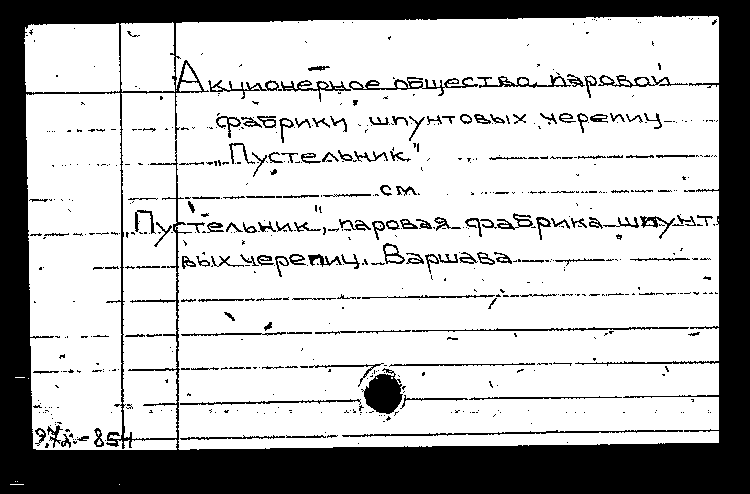 Акционерное общество паровой
фабрики шпунтовых черепиц
„Пустельник"
см.
„Пустельник", паровая фабрика шпунто
вых черепиц. Варшава